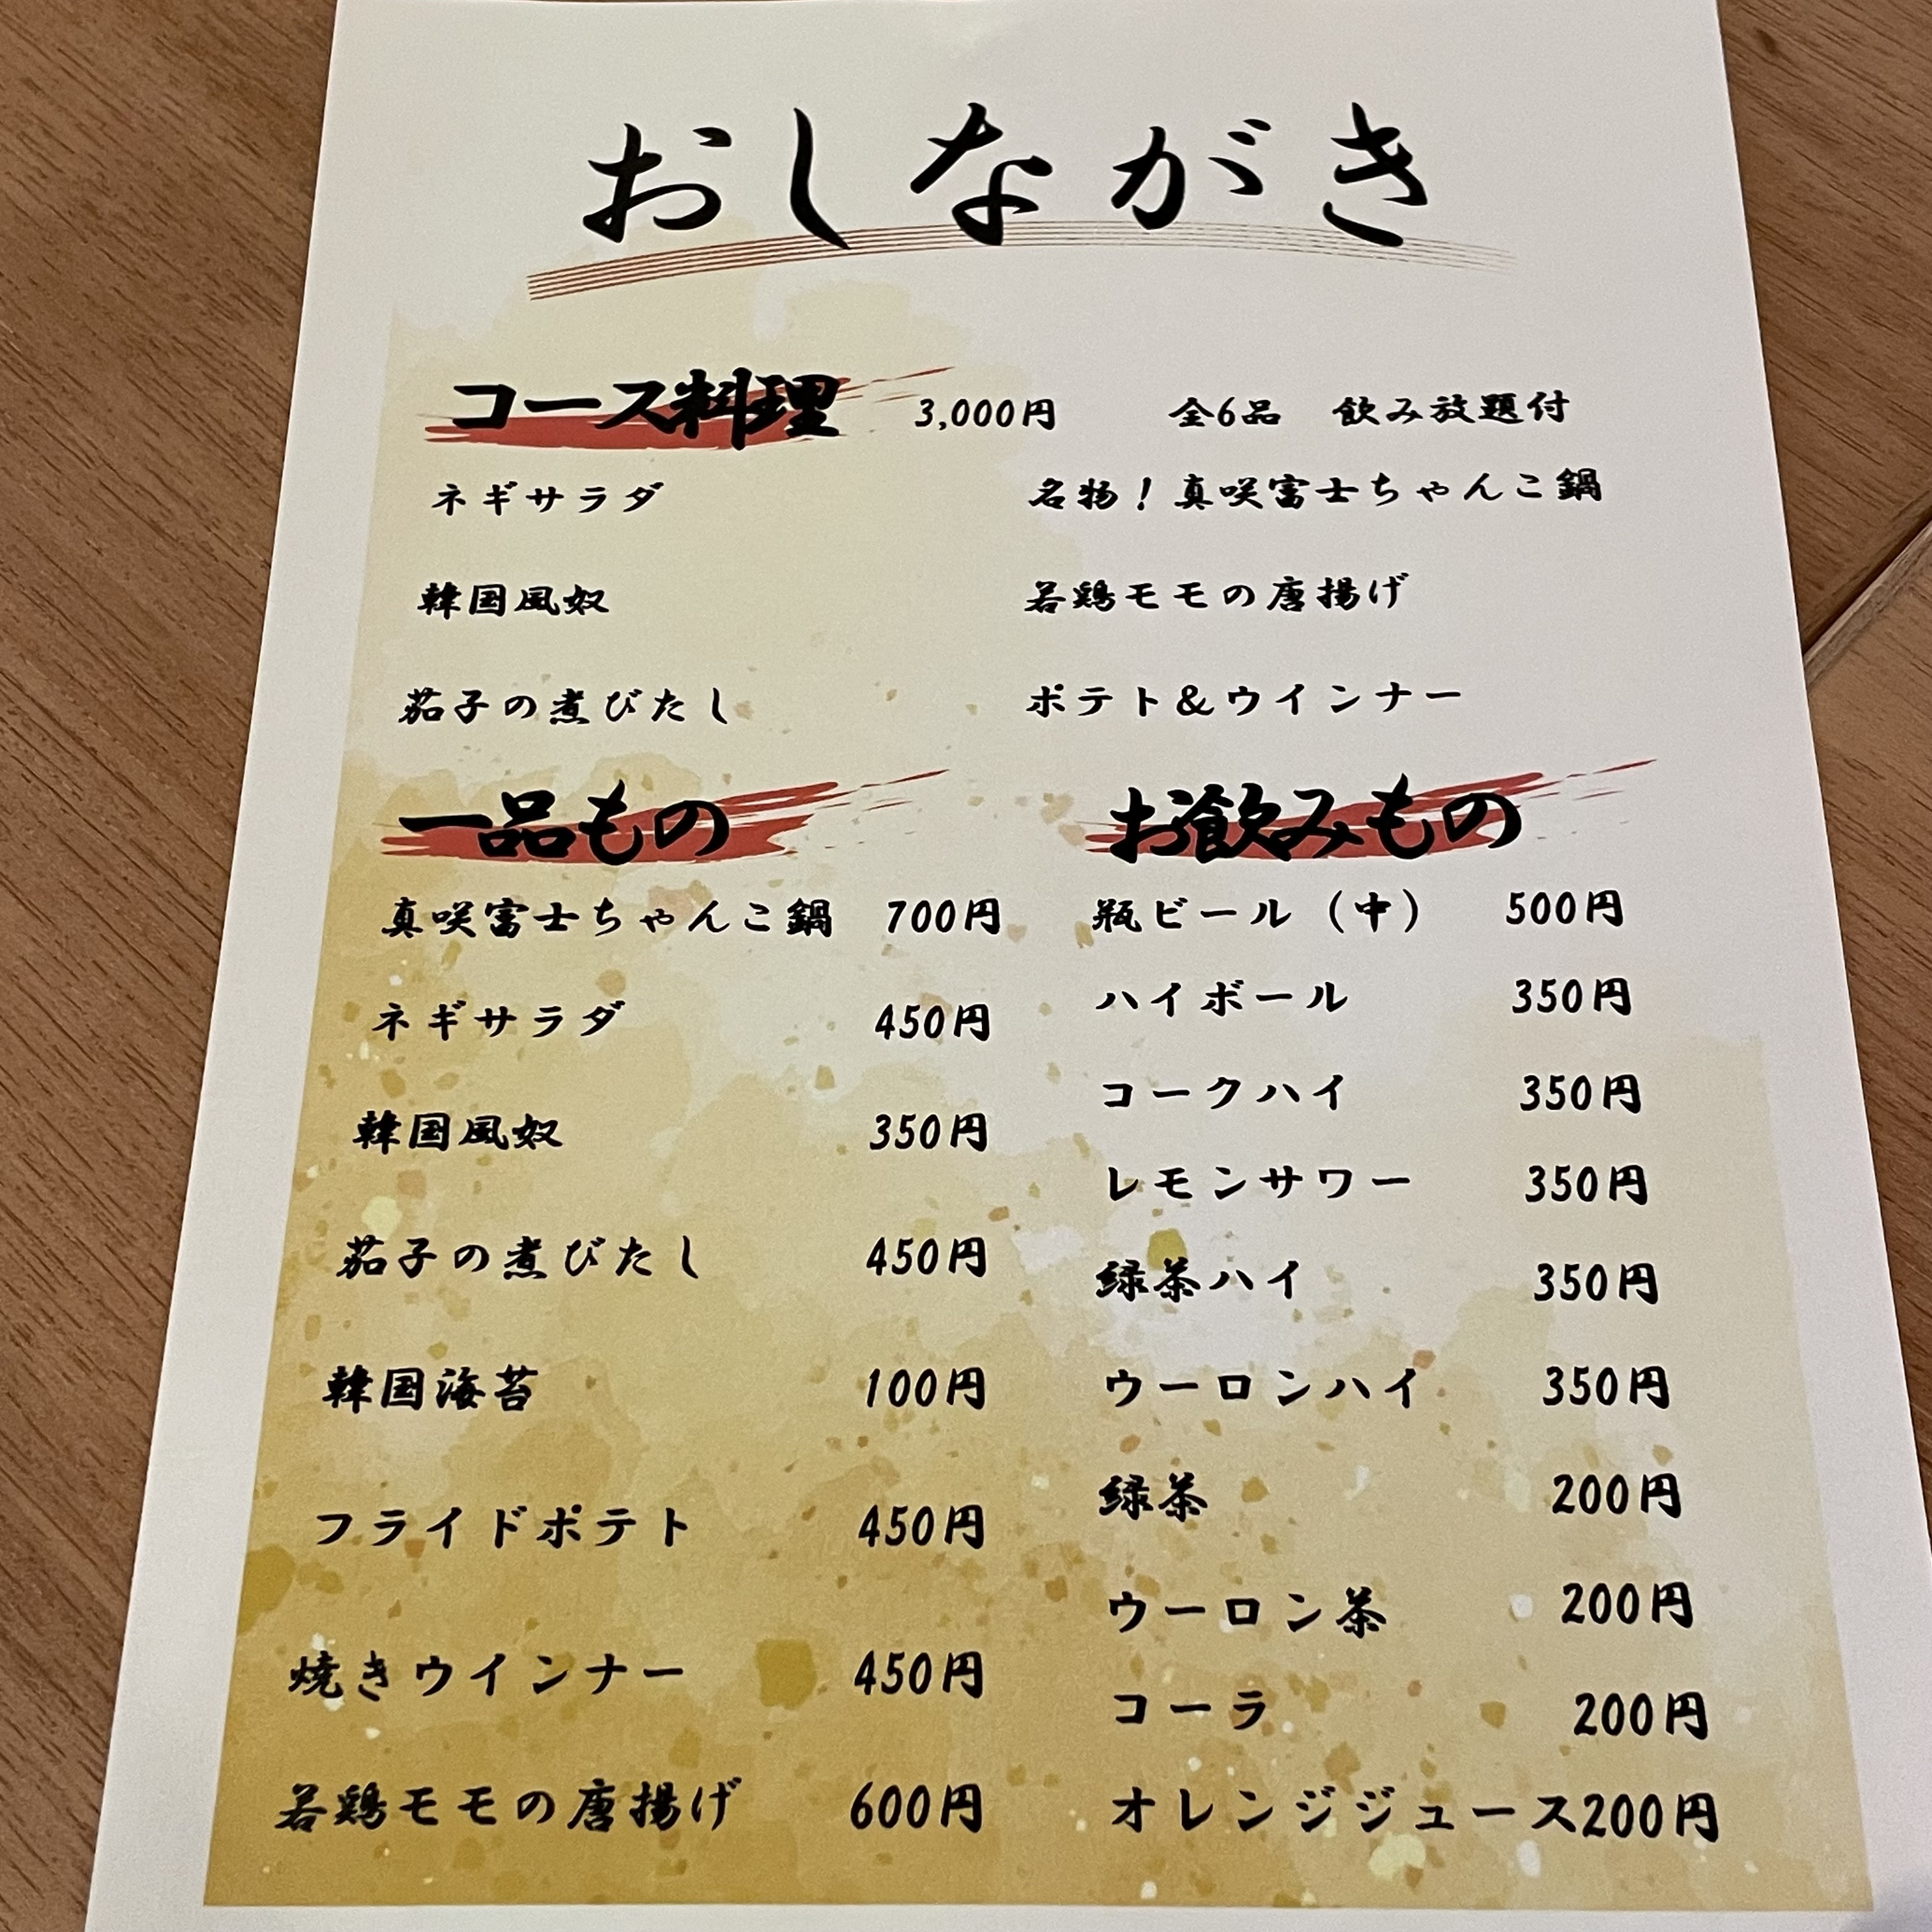 おしながき
コース料理 3,000円 全6品 飲み放題付
ネギサラダ 名物！真咲富士ちゃんこ鍋
韓国風奴 若鶏モモの唐揚げ
茄子の煮びたし ポテト＆ウインナー
一品もの
真咲富士ちゃんこ鍋 700円
ネギサラダ 450円
韓国風奴 350円
茄子の煮びたし 450円
韓国海苔 100円
フライドポテト 450円
焼きウインナー 450円
若鶏モモの唐揚げ 600円
お飲みもの
瓶ビール（中） 500円
ハイボール 350円
コークハイ 350円
レモンサワー 350円
緑茶ハイ 350円
ウーロンハイ 350円
緑茶 200円
ウーロン茶 200円
コーラ 200円
オレンジジュース200円